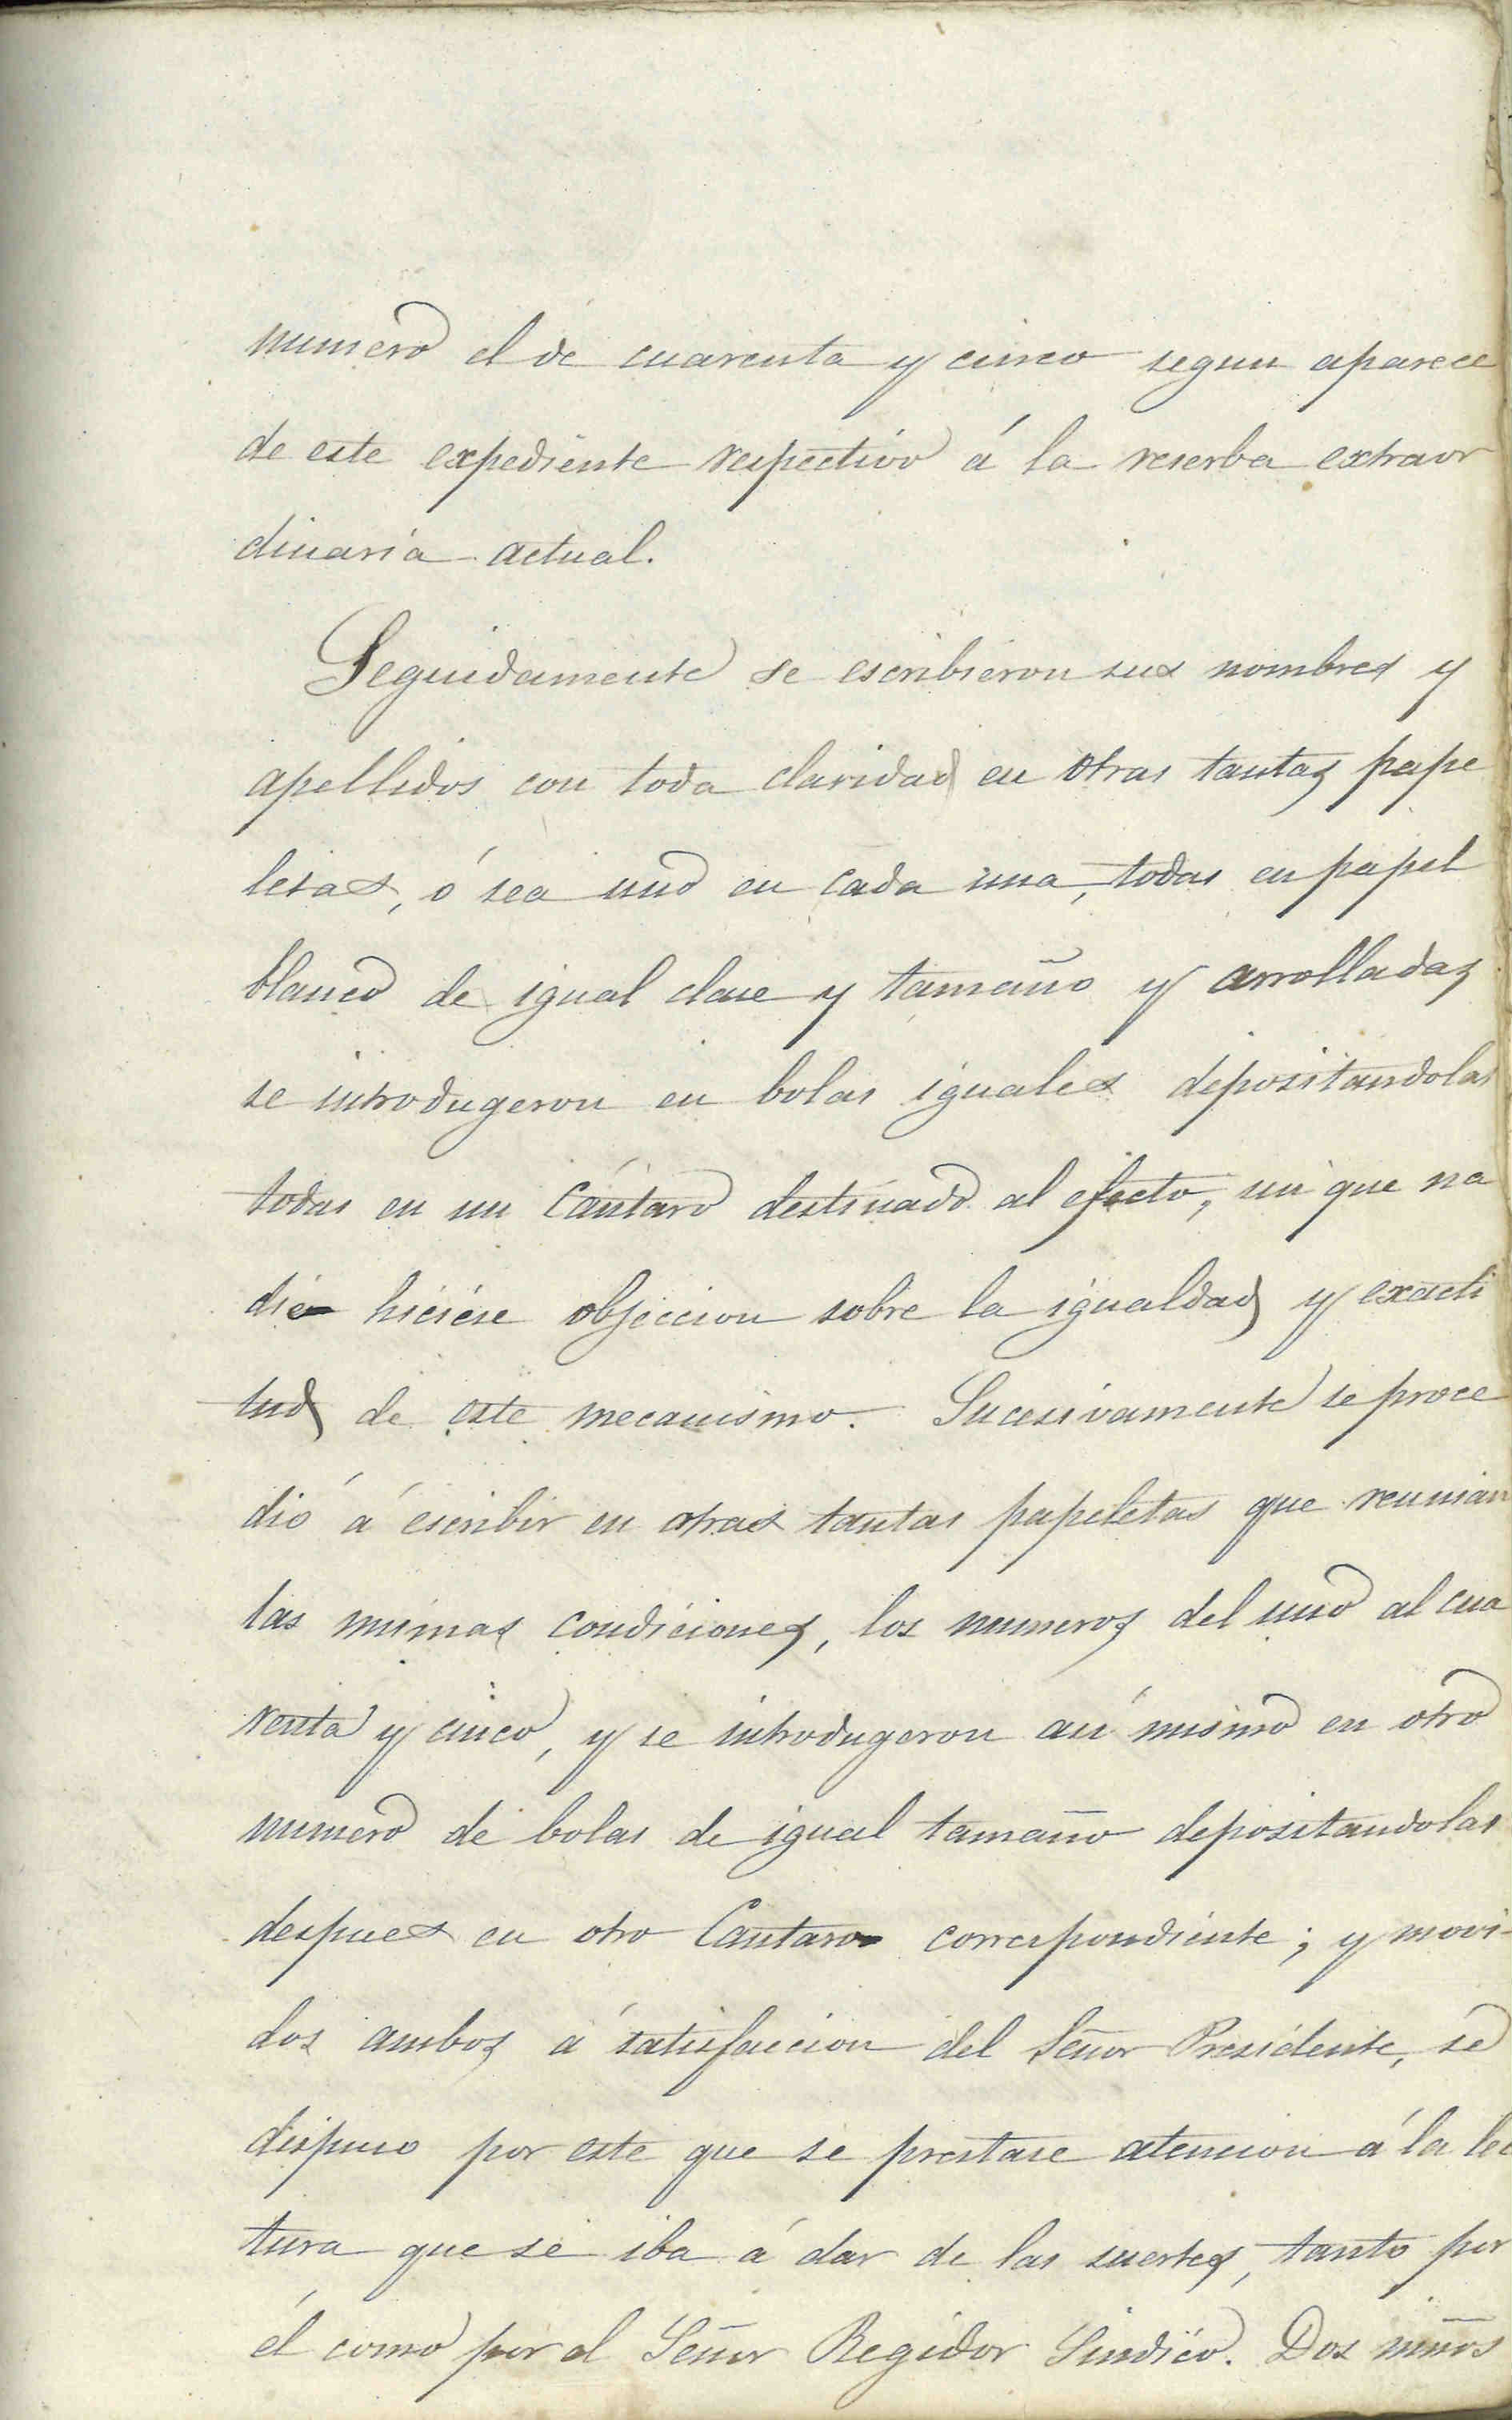 numero el de cuarenta y cinco segun aparece
de este expediente respectivo á la reserba extraor
dinaria actual.
Seguidamente se escribieron sus nombres y
apellidos con toda claridad en otras tantas pape
letas, ó sea uno en cada una, todas en papel
blanco de igual clase y tamaño y arrolladas
se introdugeron en bolas iguales depositandolas
todas en un Cántaro destinado al efecto, sin que na
die hiciese objeccion sobre la igualdad y exacti
tud de este mecanismo. Sucesivamente se proce
dió á escribir en otras tantas papeletas que reunian
las mismas condiciones, los numeros del uno al cua
renta y cinco, y se introdugeron asi mismo en otro
numero de bolas de igual tamaño depositandolas
despues en otro Cantaro correspondiente; y movi-
dos ambos á satisfaccion del Señor Presidente, se
dispuso por este que se prestase atencion á la lec
tura que se iba á dar de las suertes, tanto por
él como por el Señor Regidor Sindico. Dos niños